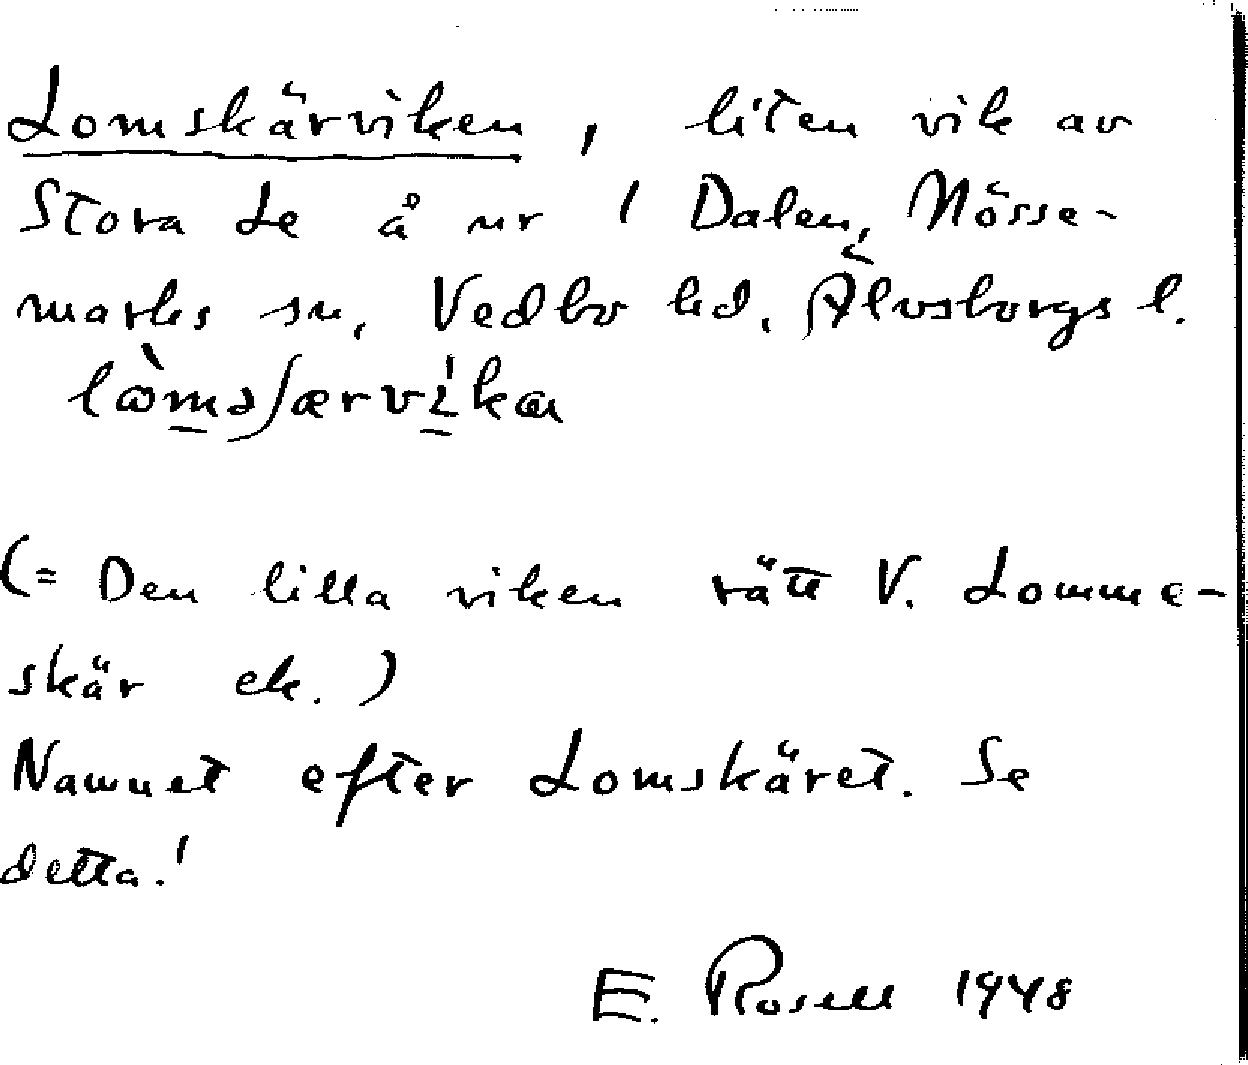 Lomskärviken, liten vik av
Stora Le å nr 1 Dalen, Nösse-
marks sn, Vedbo hd, Älvsborgs l.
(= Den lilla viken rätt V. Lomme-
skär ek.)
Namnet efter Lomskäret. Se
detta!
E. Rosell 1948